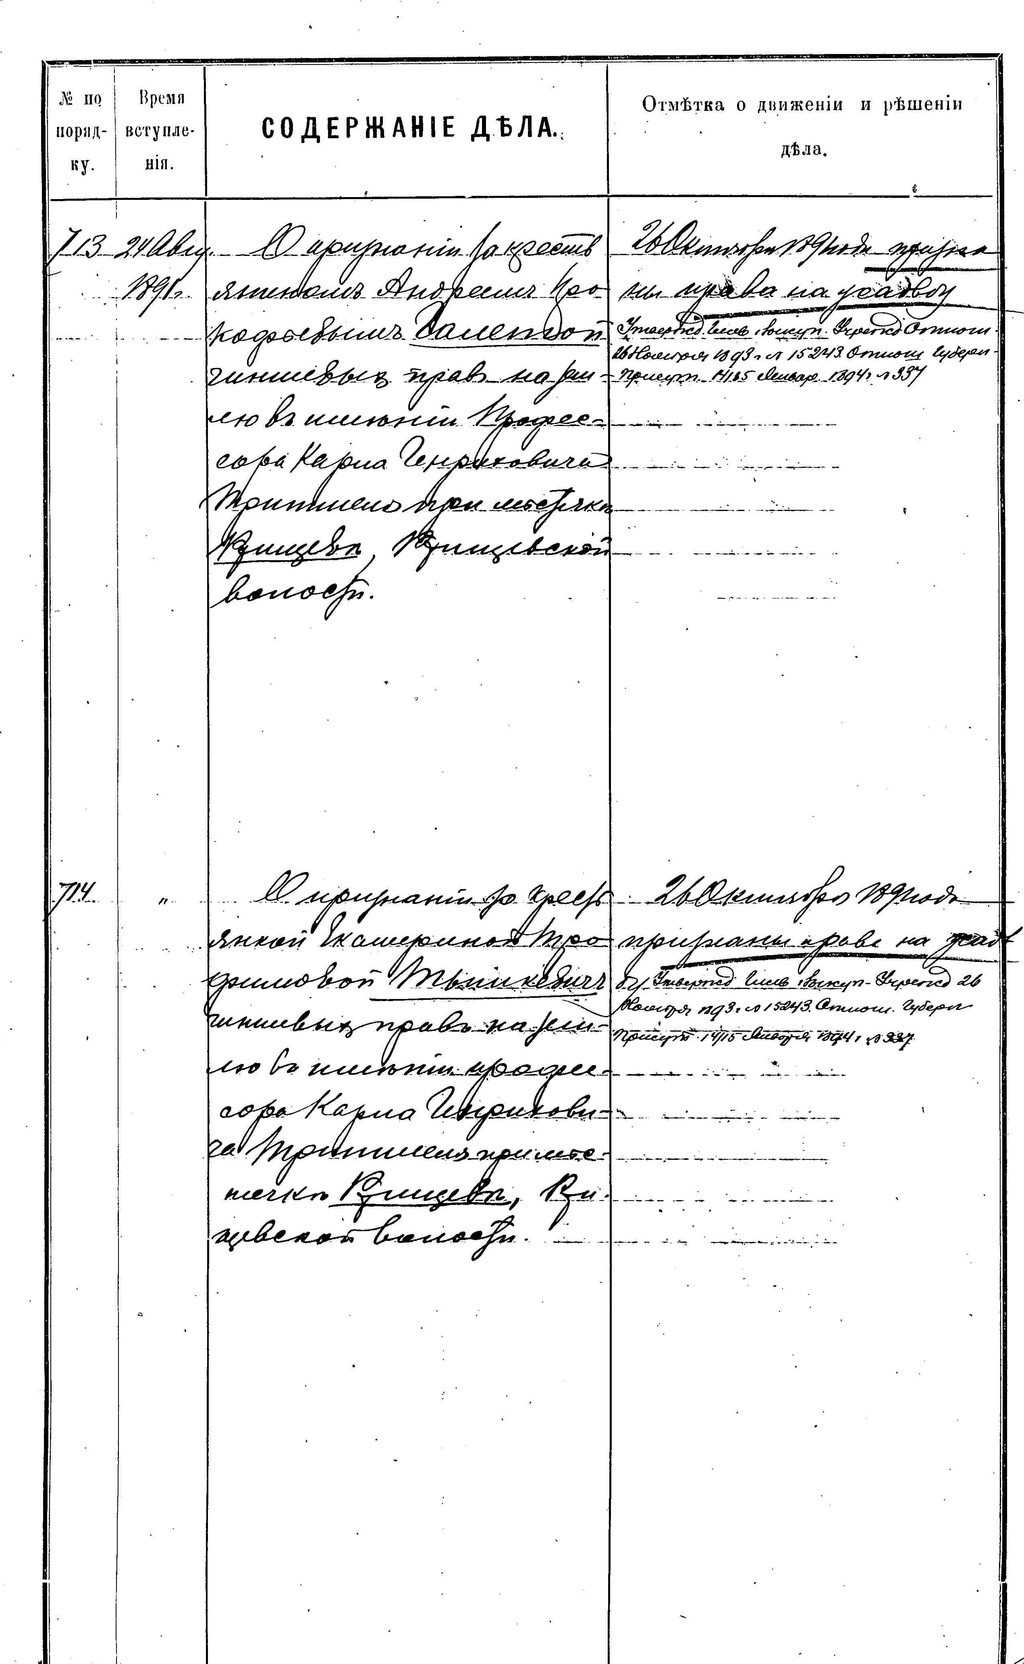 № по порядку.
Время вступленія.
СОДЕРЖАНІЕ ДѢЛА.
Отмѣтка о движеніи и рѣшеніи дѣла.
713 24 Авг. 1891 г.
О признаніи за кресть
яниномъ Андреемъ Про
кофьевымъ
чиншевыхъ правъ на зем-
лю въ имѣніи Профес-
сора Карла Генриховича
при мѣстечкѣ
Кищевской
волости.
26 Октября 1891 года призна
ны права на усадьбу
26 Ноября 1893 г. № 15243. Отнош. Губерн.
Присут. 14/15 Январ. 1894 г. № 337
714. "
О признаніи за кресть
янкой Екатериной Тро
фимовой Мышкевичъ
чиншевыхъ правъ на зем-
лю въ имѣніи профес-
сора Карла Генрихови-
ча при мѣс-
течкѣ
волости.
26 Октября 1891 года
признаны права на усадь
бу. 26
Ноября 1893 г. № 15243. Отнош. Губерн
Присут. 14/15 Января 1894 г. № 337